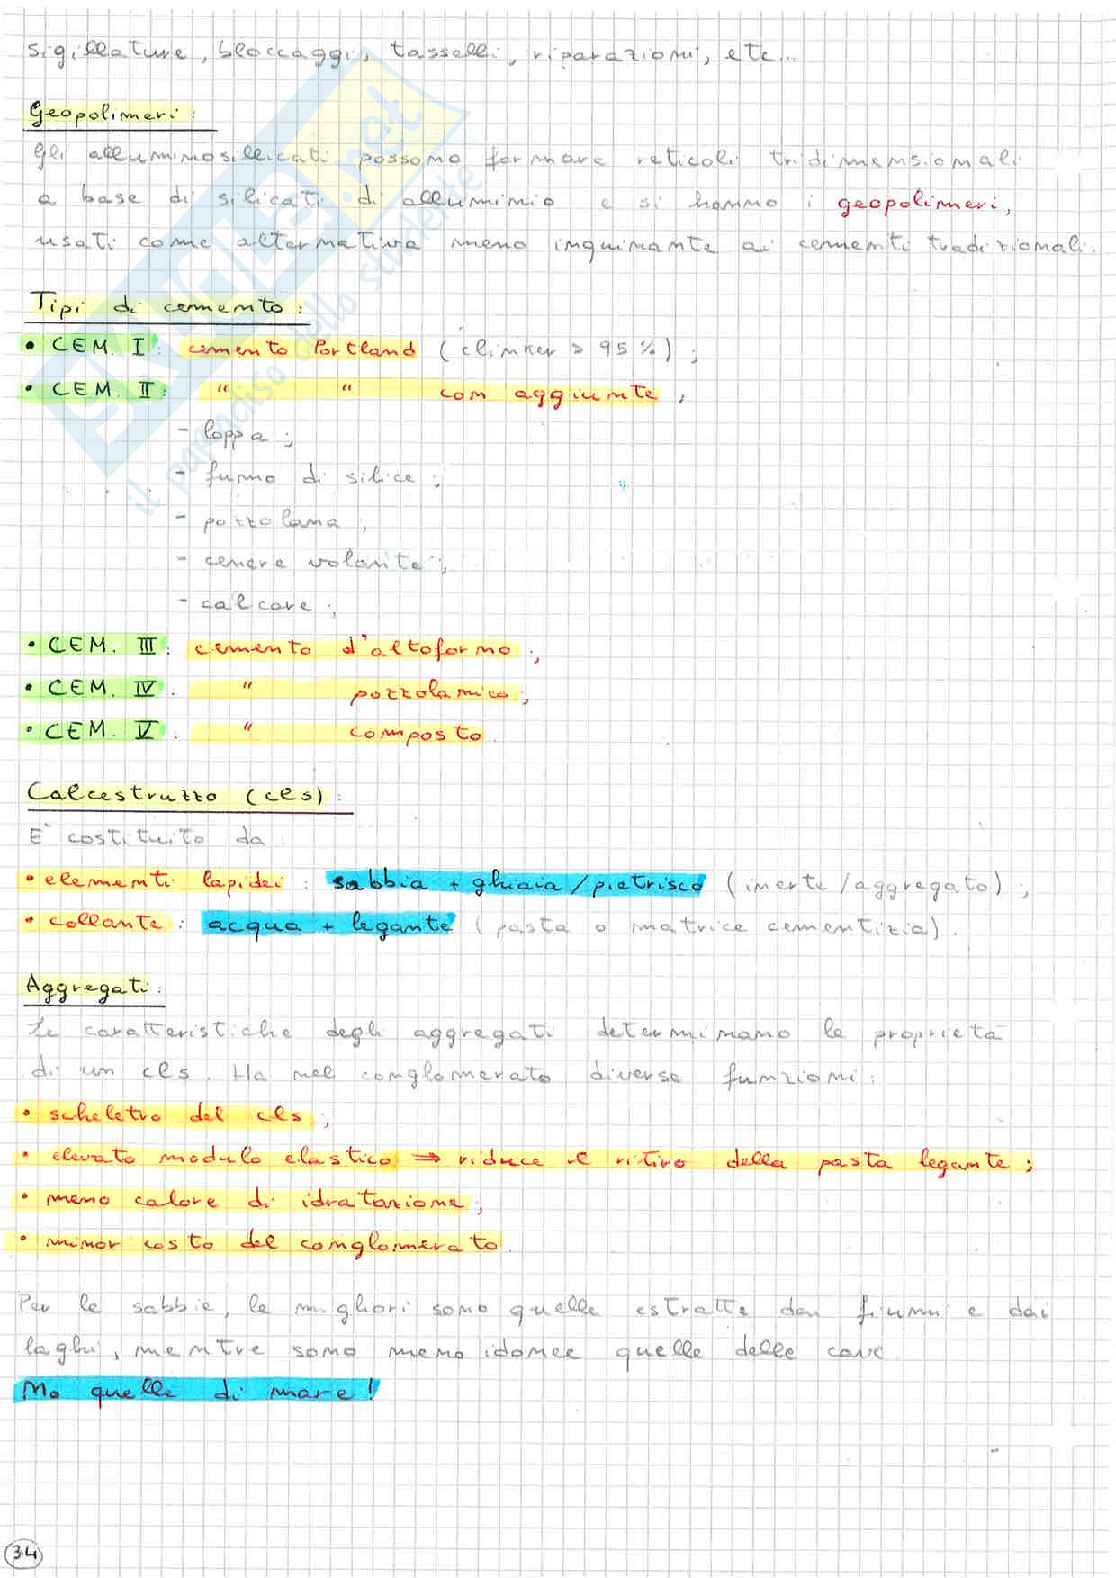 sigillature, bloccaggi, tasselli, riparazioni, etc...
Geopolimeri:
Gli alluminosilicati possono formare reticoli tridimensionali
a base di silicati di alluminio e si hanno i geopolimeri,
usati come alternativa meno inquinante ai cementi tradizionali.
Tipi di cemento:
• CEM. I: cemento Portland (clinker > 95%);
• CEM. II: " " con aggiunte,
- loppa;
- fumo di silice;
- pozzolana;
- cenere volante;
- calcare;
• CEM. III: cemento d'altoforno;
• CEM. IV: " pozzolanico;
• CEM. V: " composto.
Calcestruzzo (cls):
E' costituito da
• elementi lapidei: sabbia + ghiaia/pietrisco (inerte/aggregato);
• collante: acqua + legante (pasta o matrice cementizia).
Aggregati:
Le caratteristiche degli aggregati determinano le proprietà
di un cls. Ha nel conglomerato diverse funzioni:
• scheletro del cls;
• elevato modulo elastico ⇒ riduce il ritiro della pasta legante;
• meno calore di idratazione;
• minor costo del conglomerato.
Per le sabbie, le migliori sono quelle estratte dai fiumi e dai
laghi, mentre sono meno idonee quelle delle cave.
No quelle di mare!
34
SKUOLA.net
il paradiso dello studente